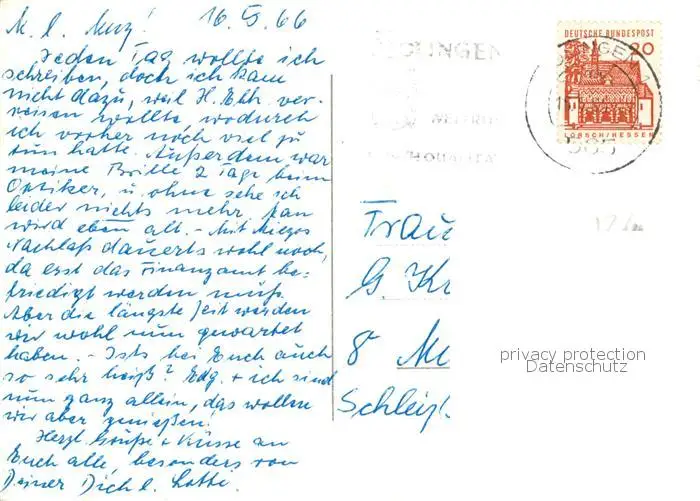 M. l. Muz! 16.5.66
Jeden Tag wollte ich
schreiben, doch ich kam
nicht dazu, weil H. Ehh. ver-
reisen wollte, wodurch
ich vorher noch viel zu
tun hatte. Außerdem war
meine Brille 2 Tage beim
Optiker, u. ohne sehe ich
leider nichts mehr. Man
wird eben alt. - Mit Miezes
Nachlaß dauerts wohl noch,
da erst das Finanzamt be-
friedigt werden muß.
Aber die längste Zeit werden
wir wohl nun gewartet
haben. - Ists bei Euch auch
so sehr heiß? Edg. + ich sind
nun ganz allein, das wollen
wir aber genießen.
Herzl. Grüße + Küsse an
Euch alle, besonders von
Deiner Dich l. Lotte.
DEUTSCHE BUNDESPOST
20
LORSCH/HESSEN
Frau
G. Kr
8 Mü
Schleiß
privacy protection
Datenschutz